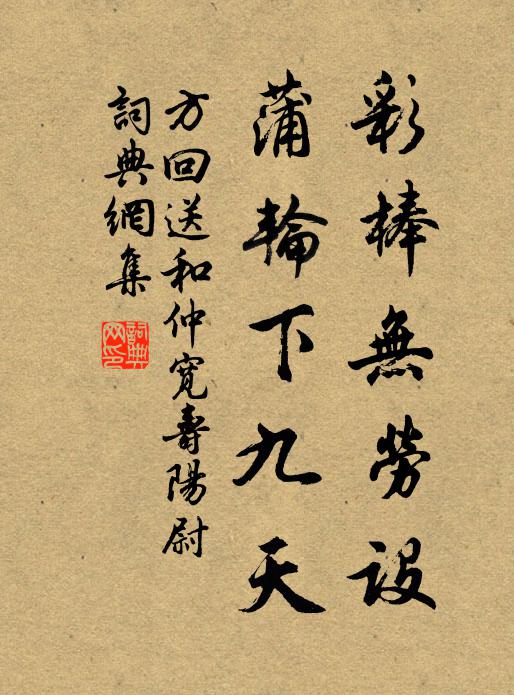 彩棒無勞設
蒲輪下九天
方回送和仲寬壽陽尉
詞典網集
詞典網印